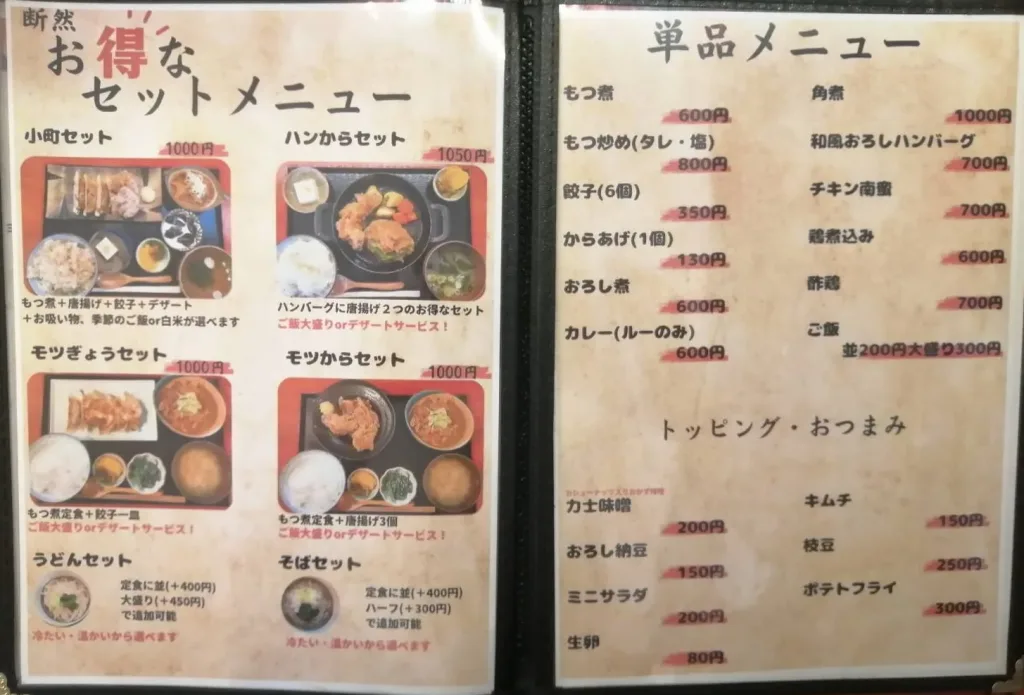 断然
お得な
セットメニュー
小町セット
1000円
もつ煮+唐揚げ+餃子+デザート
+お吸い物、季節のご飯or白米が選べます
ハンからセット
1050円
ハンバーグに唐揚げ2つのお得なセット
ご飯大盛りorデザートサービス!
モツぎょうセット
1000円
もつ煮定食+餃子一皿
ご飯大盛りorデザートサービス!
モツからセット
1000円
もつ煮定食+唐揚げ3個
ご飯大盛りorデザートサービス!
うどんセット
定食に並(+400円)
大盛り(+450円)
で追加可能
冷たい・温かいから選べます
そばセット
定食に並(+400円)
ハーフ(+300円)
で追加可能
冷たい・温かいから選べます
単品メニュー
もつ煮
600円
もつ炒め(タレ・塩)
800円
餃子(6個)
350円
からあげ(1個)
130円
おろし煮
600円
カレー(ルーのみ)
600円
角煮
1000円
和風おろしハンバーグ
700円
チキン南蛮
700円
鶏煮込み
600円
酢鶏
700円
ご飯
並200円大盛り300円
トッピング・おつまみ
力士味噌
200円
おろし納豆
150円
ミニサラダ
200円
生卵
80円
キムチ
150円
枝豆
250円
ポテトフライ
300円